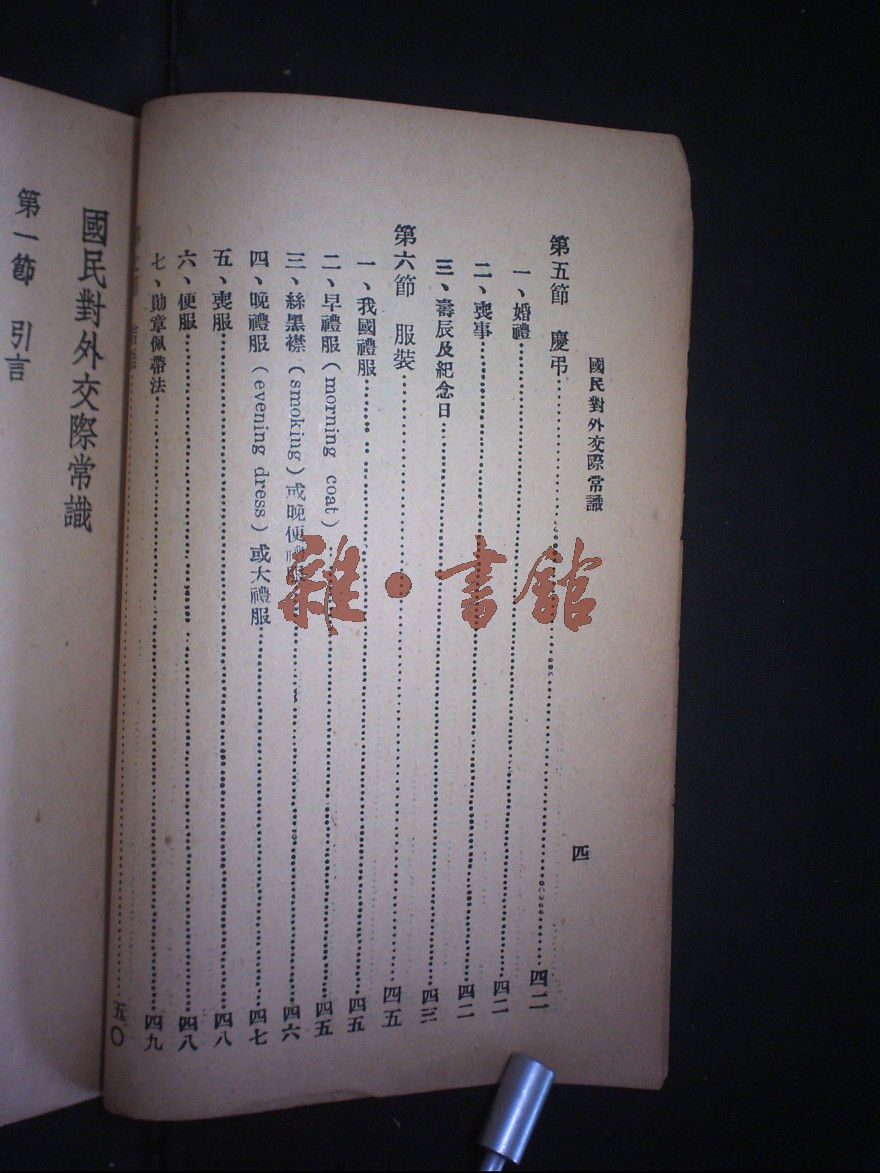 國民對外交際常識
四
第五節 慶弔……四二
一、婚禮……四二
二、喪事……四二
三、壽辰及紀念日……四三
第六節 服裝……四五
一、我國禮服……四五
二、早禮服(morning coat)……四五
三、絲黑襟(smoking)或晚便禮服……四六
四、晚禮服(evening dress)或大禮服……四七
五、喪服……四八
六、便服……四八
七、勛章佩帶法……四九
……五〇
國民對外交際常識
第一節 引言
雜·書館